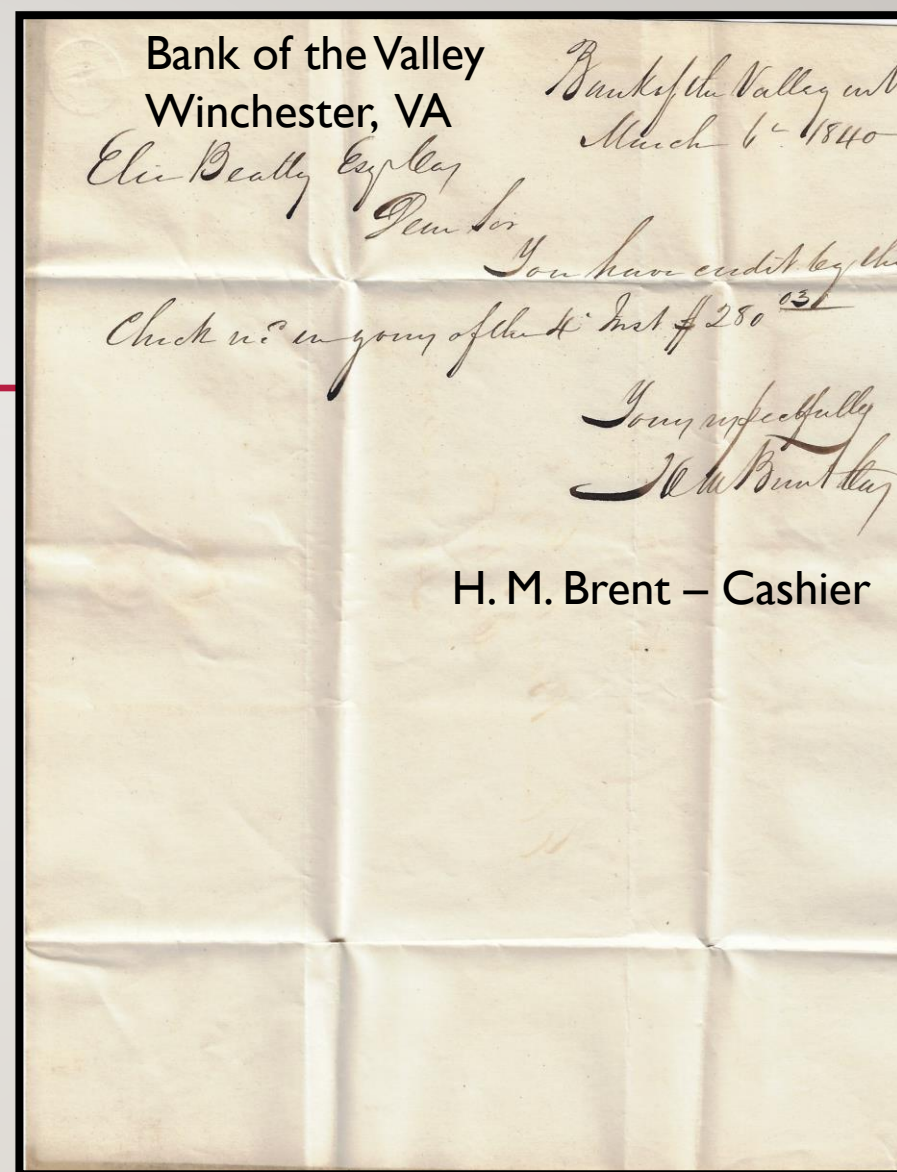 Bank of the Valley
Winchester, VA
Bank of the Valley in V
March 6th 1840
Elie Beatty Esq Cas
Dear Sir
You have credit by the
Check recd in yours of the 4th Inst $280 03
Yours respectfully
H M Brent Cas
H. M. Brent – Cashier